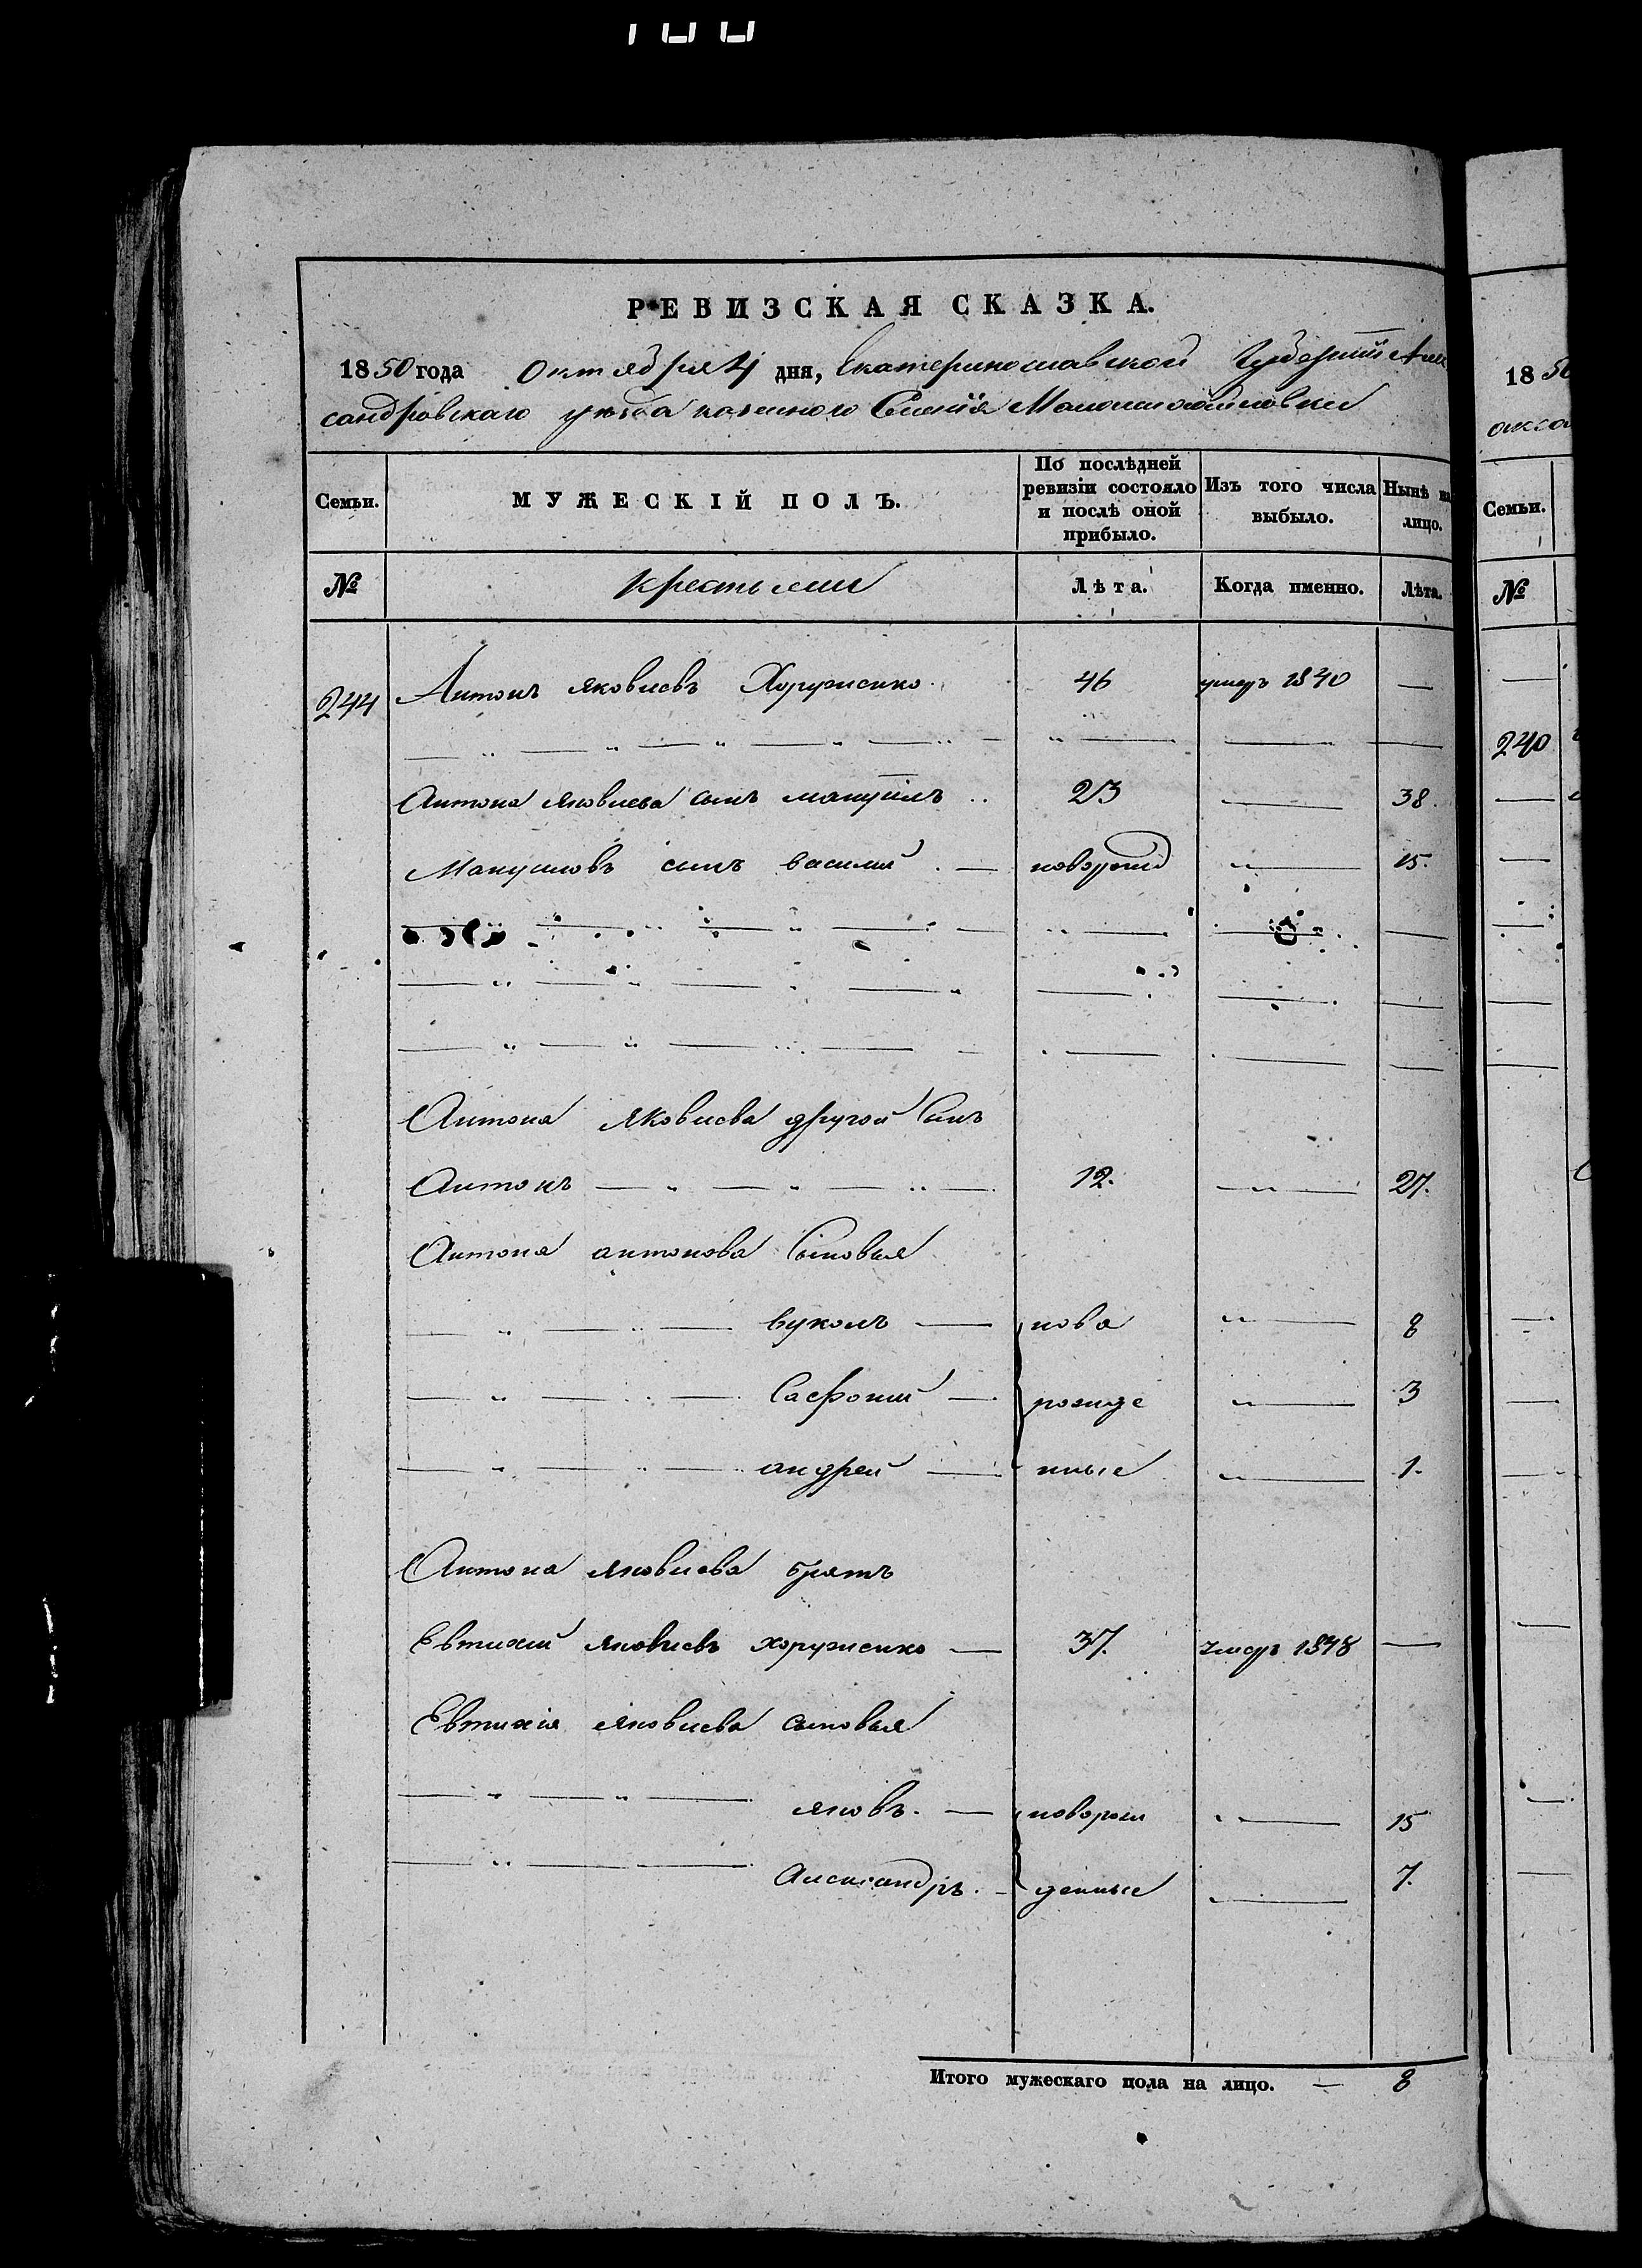 100
РЕВИЗСКАЯ СКАЗКА.
1850 года Октября 4 дня, Екатеринославской Губернiи Алек
сандровскаго уѣзда казенного Селенiя
Семьи. МУЖЕСКІЙ ПОЛЪ. По послѣдней ревизіи состояло и послѣ оной прибыло. Изъ того числа выбыло. Нынѣ на лицо.
№ крестьяне Лѣта. Когда именно. Лѣта.
244 Антонъ яковлевъ Хоруженко 46 умеръ 1840 —
Антона яковлева сынъ мануилъ 23 — 38.
Мануиловъ сынъ василий новорожд — 15.
Антона яковлева другой Сынъ
Антонъ 12. — 27.
Антона антонова Сыновья
вуколъ нова — 8
Сафоний рожде — 3
андрей нные — 1.
Антона яковлева братъ
Евтихий яковлевъ хоруженко 37. умеръ 1848 —
Евтихiя яковлева сыновья
яковъ. новорож — 15
Александръ. денные — 7.
Итого мужескаго пола на лицо. — 8
18 50
Семьи.
№
240